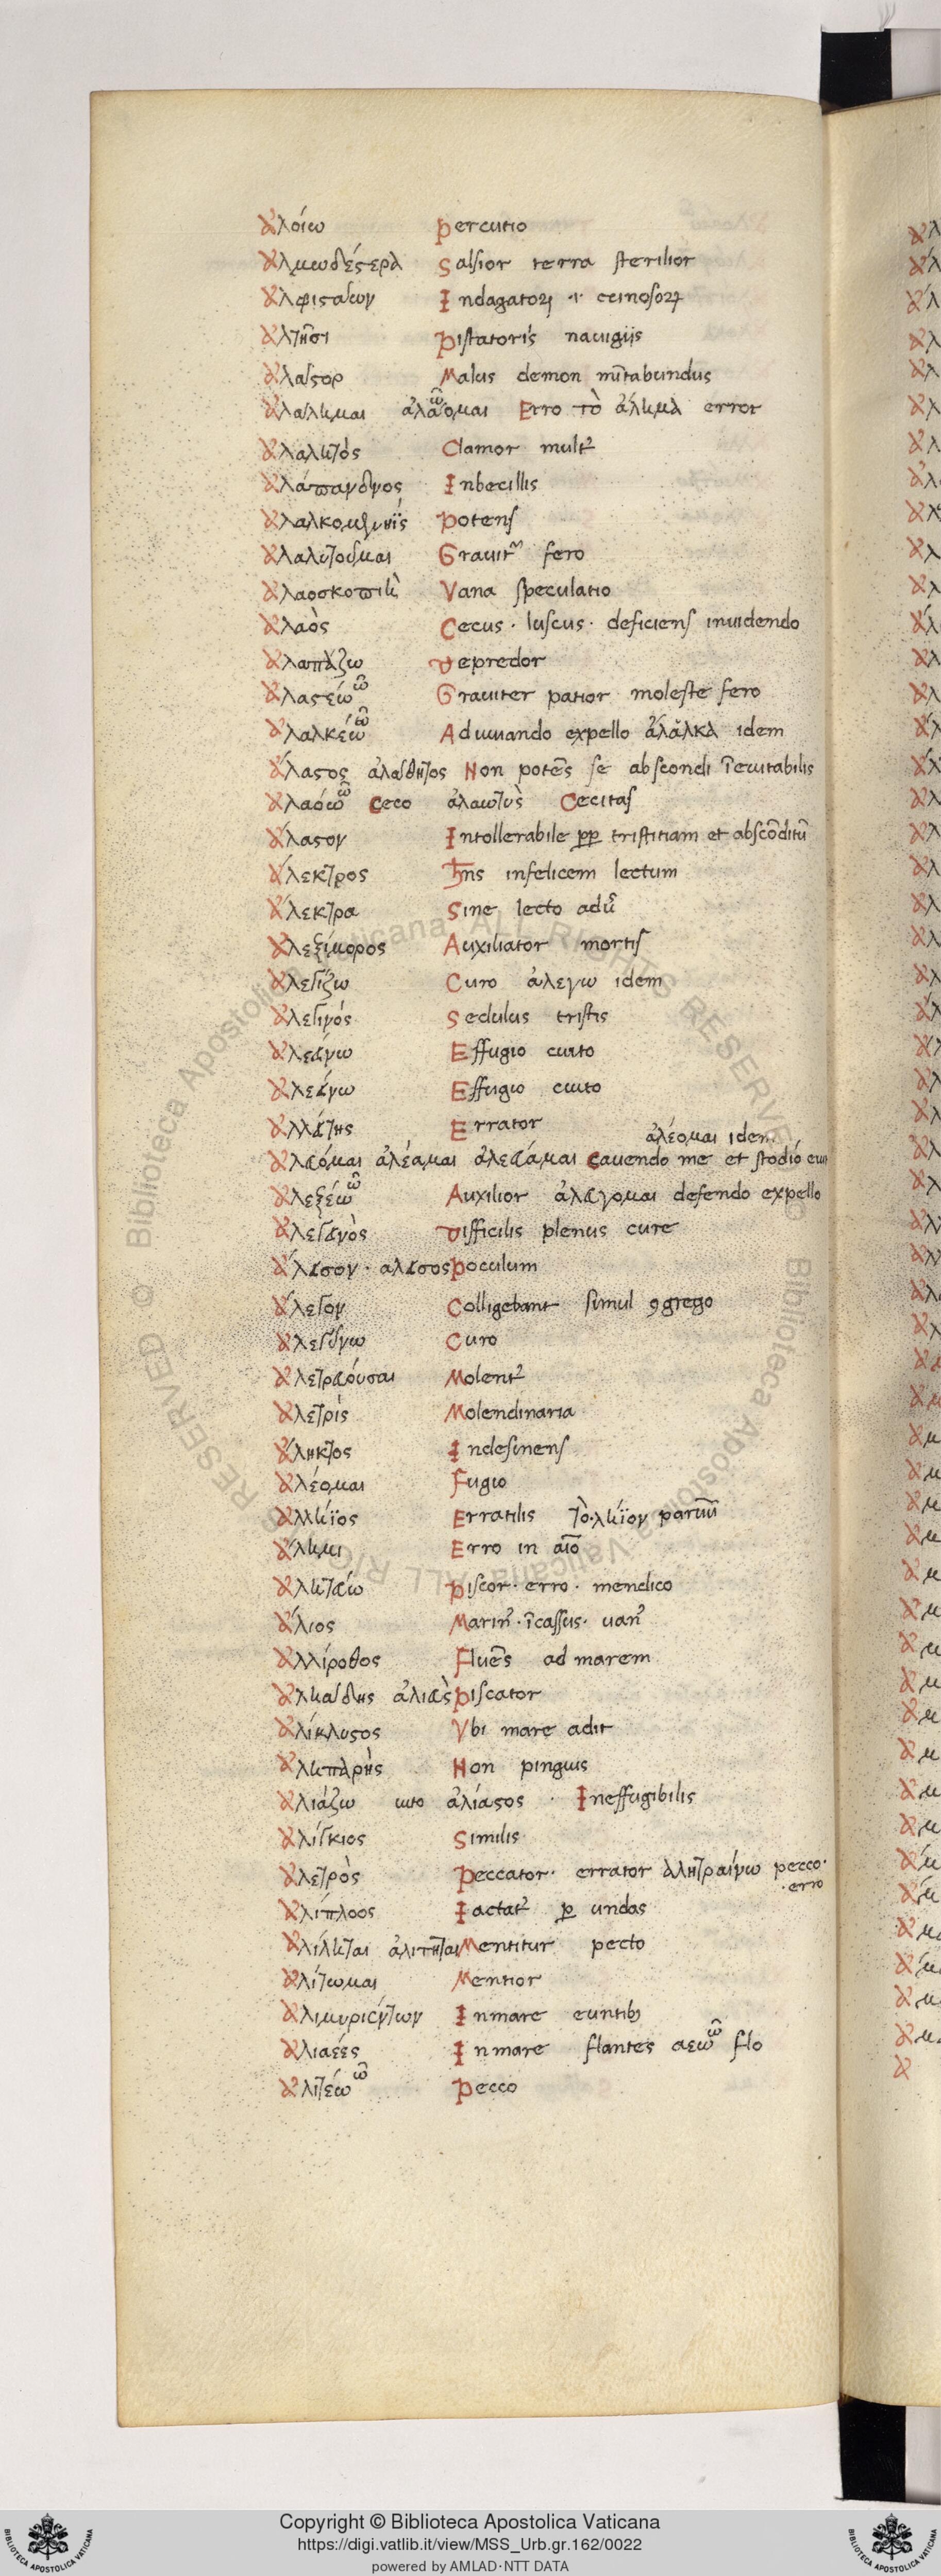 ἀλοίω Percutio
ἀλμωδέςερα Salsior terra sterilior
ἀλφιςάων Indagatoꝝ ·i· ceinosoꝝ
ἀλτῆσι Pistatoris nauigijs
ἀλάςορ Malus demon
ἀλάλημαι ἀλάομαι ῶ Erro τὸ ἄλημα error
ἀλαλητὸς Clamor
ἀλάπανδνος Inbecillis
ἀλαλκομενηῒς Potens
ἀλαλύτουμαι fero
ἀλαοσκοπιὴ Vana speculatio
ἀλαὸς Cecus · luscus · deficiens inuidendo
ἀλαπάζω Depredor
ἀλαςέω ῶ Grauiter patior moleste fero
ἀλαλκέω ῶ Adiuuando expello ἀλάλκα idem
ἄλαςος ἀλάθητος Non potēs se abscondi īeuitabilis
ἀλαόω ῶ Ceco ἀλαωτὺς Cecitas
ἄλαςον Intollerabile ꝓꝑ tristitiam et abscōditū
ἄλεκτρος infelicem lectum
ἄλεκτρα Sine lecto
ἀλεξίμορος Auxiliator mortis
ἀλεγίζω Curo ἀλεγω idem
ἀλεγινός Sedulus tristis
ἀλεείνω Effugio euito
ἀλεείνω Effugio euito
ἀλείτης Errator
ἀλέομαι idem
ἀλεύομαι ἀλέαμαι ἀλεύαμαι Cauendo me et
ἀλεξέω ῶ Auxilior defendo expello
ἀλεγεινὸς Difficilis plenus cure
ἄλεισον · αλεισος Poculum
ἄλεγον Colligebant simul ꝯgrego
ἀλεγύνω Curo
ἀλετρεύουσαι
ἀλετρὶς Molendinaria
ἄληκτος Indesinens
ἀλέομαι Fugio
ἀλήϊος Erratilis τὸ·λήϊον
ἄλημι Erro in aīo
ἀλητεύω Piscor · erro · mendico
ἅλιος Marinꝰ · īcassus · uanꝰ
ἁλίροθος Fluēs ad marem
ἀλιάδης ἁλιεὺς Piscator
ἀλίκλυςος Vbi mare adit
ἀλιπαρὴς Non pinguis
ἀλιάζω unο ἀλίαςος · Ineffugibilis
ἀλίγκιος Similis
ἀλετρὸς Peccator · errator ἀλητραίνω pecco ·
· erro
ἀλίπλοος Iactatꝛ ꝑ undas
ἀλίληται ἀλιτῆται Mentitur pecto
ἀλίτωμαι Mentior
ἀλιμυρισήτων Inmare euntibꝫ
ἀλιαέες Inmare flantes αεω ῶ flo
ἀλιτέω ῶ Pecco
Copyright © Biblioteca Apostolica Vaticana
https://digi.vatlib.it/view/MSS_Urb.gr.162/0022
powered by AMLAD·NTT DATA